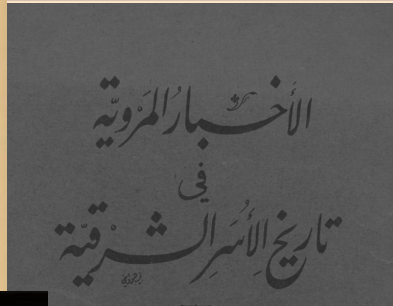 الأخبار المَرويّة
في
تاريخ الأُسَرِ الشرقيّة